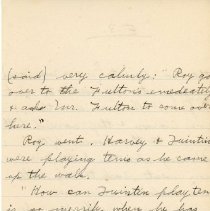 (said) very calmly: "Roy go
over to the Fulton's imediately
& ask Mr. Fulton to come over
here."
Roy went. Harvey & Quintin
were playing tenis as he came
up the walk.
"How can Quintin play ten
is so merrily when he has